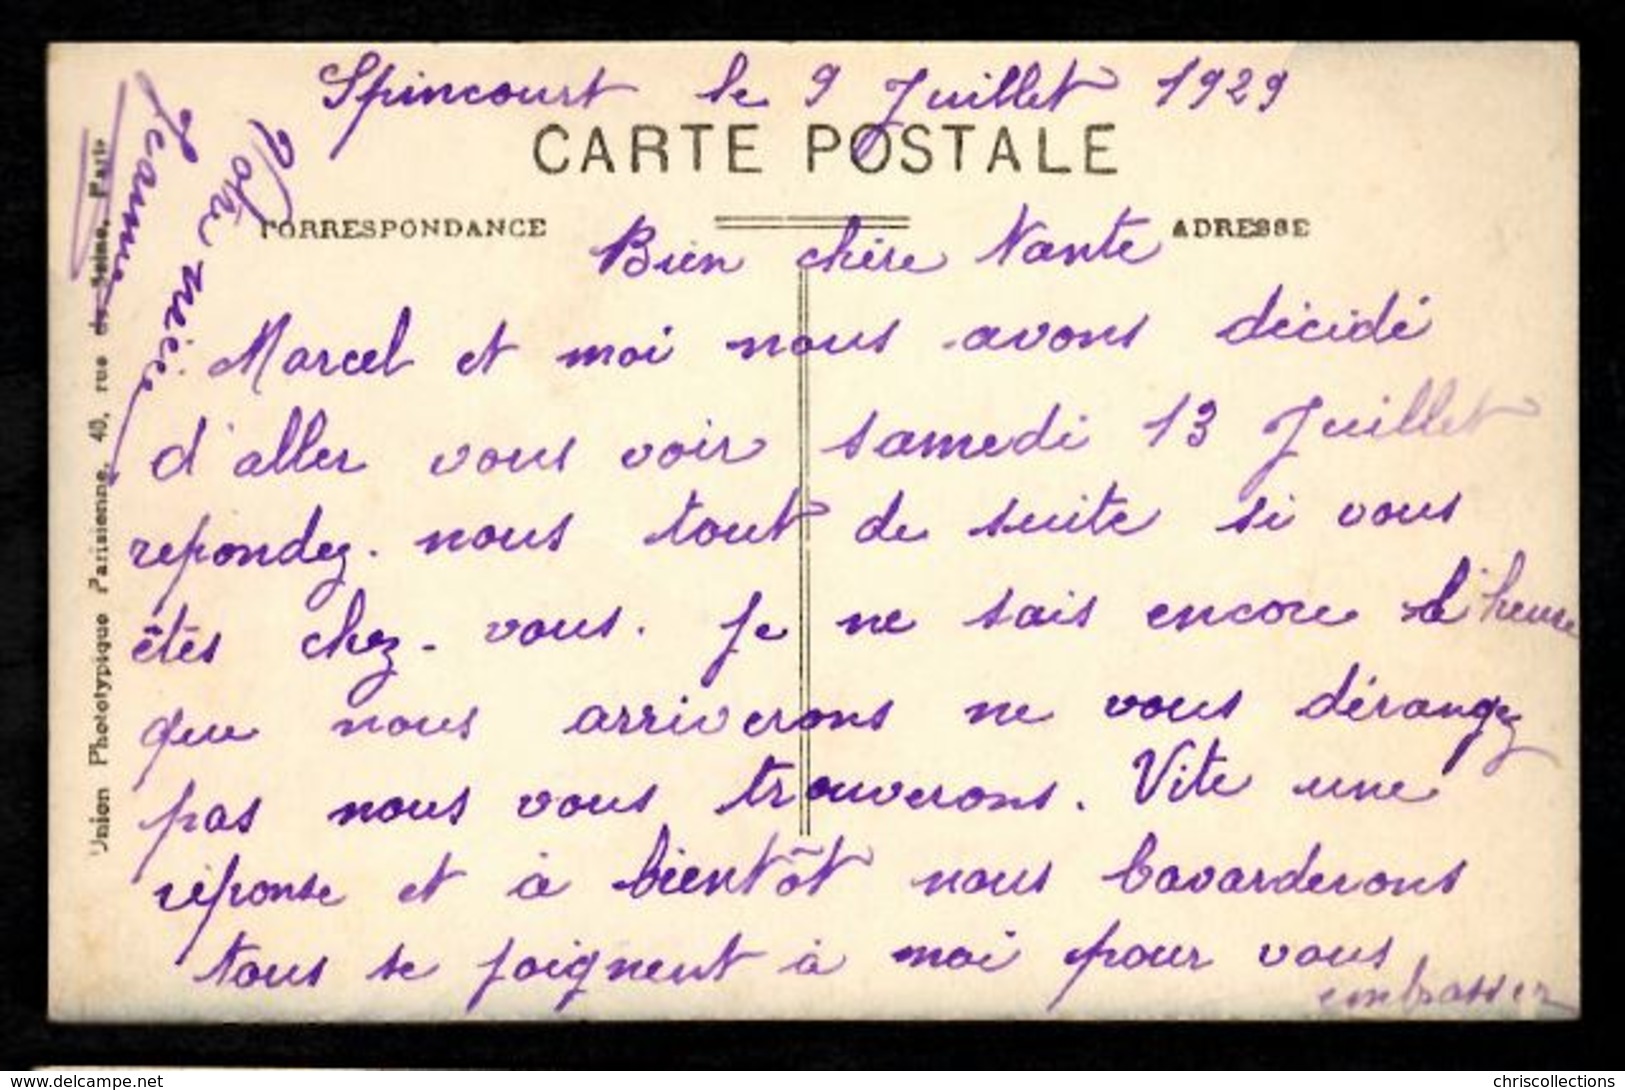 Spincourt le 9 Juillet 1929
CARTE POSTALE
CORRESPONDANCE
ADRESSE
Bien chère Tante
Marcel et moi nous avons décidé
d'aller vous voir samedi 13 Juillet
repondez-nous tout de suite si vous
êtes chez-vous. Je ne sais encore l'heure
que nous arriverons ne vous dérangez
pas nous vous trouverons. Vite une
réponse et à bientôt nous bavarderons
tous se joignent à moi pour vous
embrasser
Votre nièce
Jeanne
Union Phototypique Parisienne, 40, rue de Seine, Paris
chriscollections
www.delcampe.net